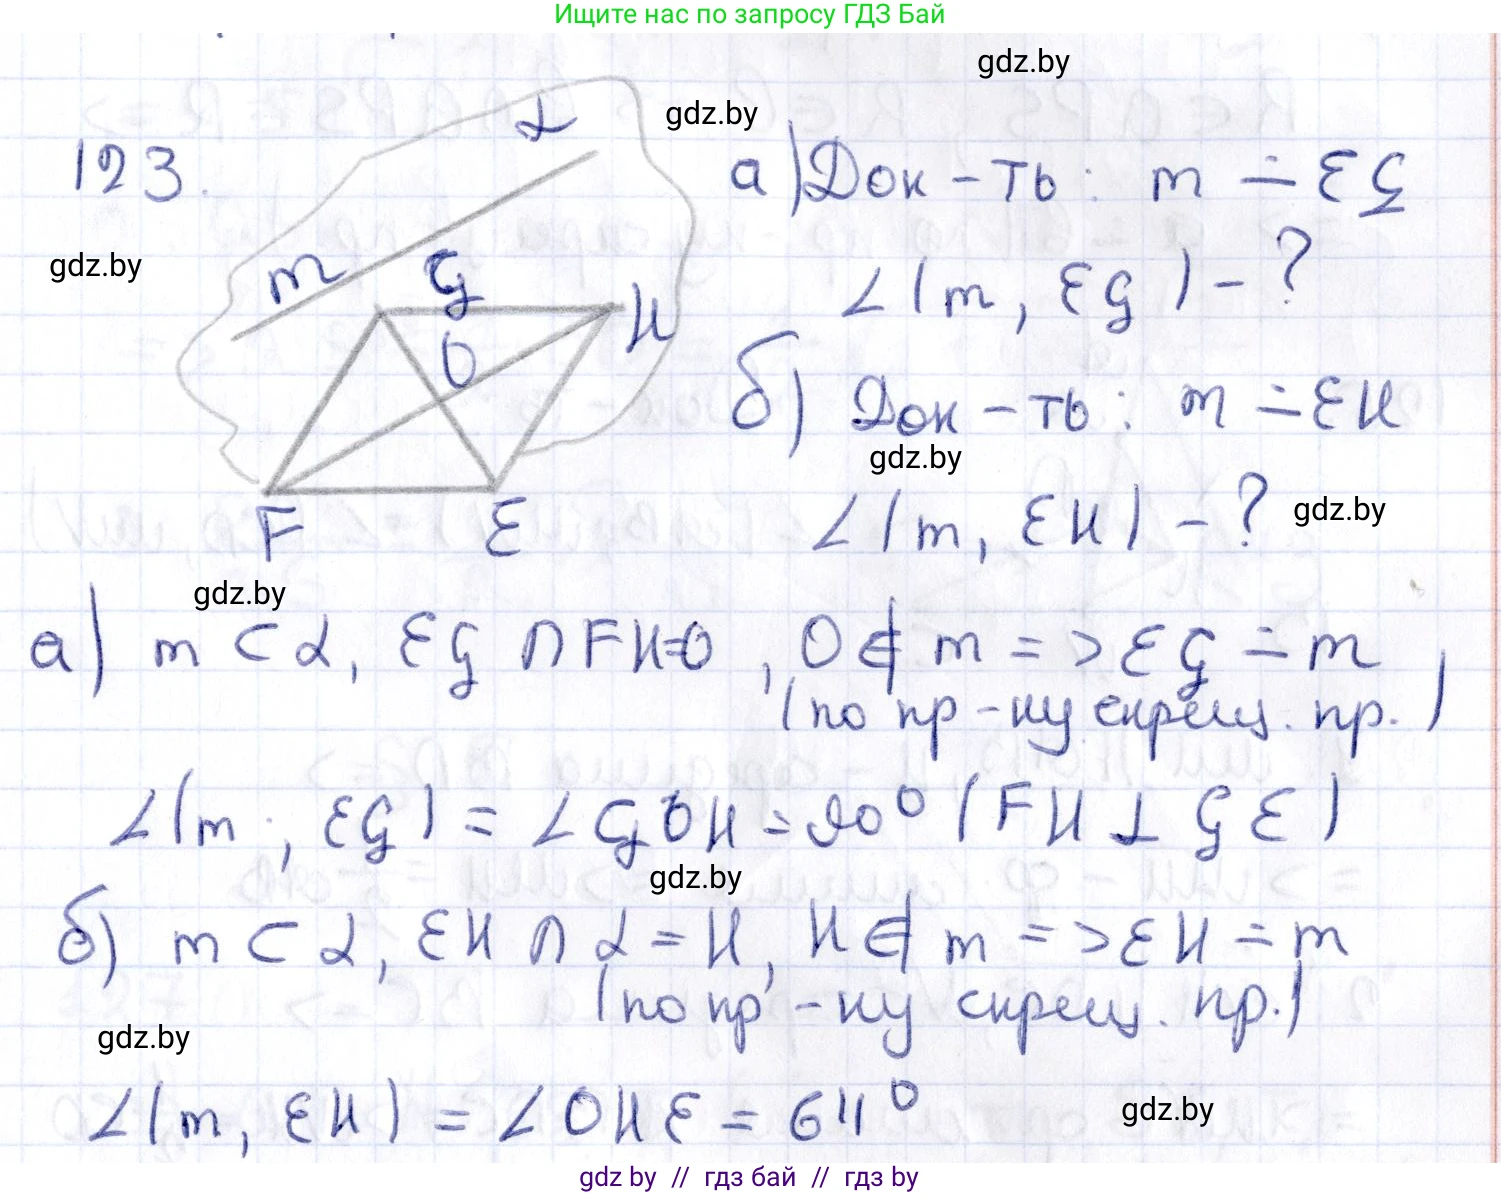 Ищите нас по запросу ГДЗ Бай
gdz.by
gdz.by
123.
α
а) Док-ть: m ∸ EG
gdz.by
m
G
H
O
∠(m, EG) - ?
б) Док-ть: m ∸ EH
gdz.by
F
E
∠(m, EH) - ?
gdz.by
gdz.by
а) m ⊂ α, EG ∩ FH=O, O ∉ m => EG ∸ m,
(по пр-ку скрещ. пр.)
∠(m, EG) = ∠GOH = 90° (FH ⊥ GE)
gdz.by
б) m ⊂ α, EH ∩ α = H, H ∉ m => EH ∸ m
(по пр-ку скрещ. пр.)
gdz.by
∠(m, EH) = ∠OHE = 64°
gdz.by
gdz by // гдз бай // gdz by